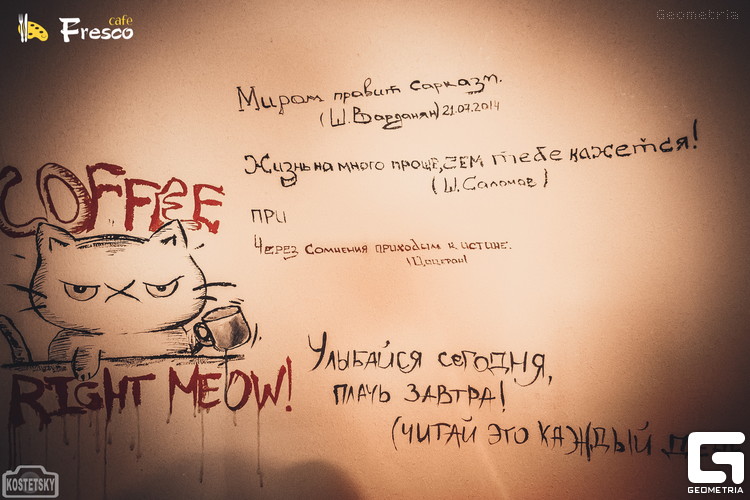 cafe
Fresco
Geometria
Миром правит Сарказм.
(Ш. Варданян) 21.07.2014
Жизнь на много проще, чем тебе кажется!
(Ш. Саломов)
ПРИ
Через Сомнения приходим к истине.
(Цицерон)
COFFEE
RIGHT MEOW!
Улыбайся сегодня,
плачь завтра!
(читай это каждый
KOSTETSKY
GEOMETRIA